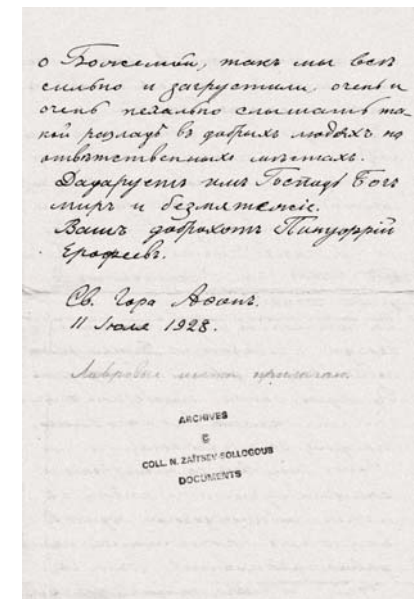 о Божемъби, такъ мы всѣ
сильно и загрустили, очень и
очень печально слышать та-
кой разладъ въ добрыхъ людяхъ на
отвѣтственныхъ мѣстахъ.
Дадаруетъ имъ Господь Богъ
миръ и безмятежіе.
Вашъ доброхотъ Пинуфрій
Ерофеевъ.
Св. Гора Аѳонъ.
11 Іюля 1928.
Лавровые листы прилагаю.
ARCHIVES
COLL. N. ZAÏTSEV-SOLLOGOUB
DOCUMENTS